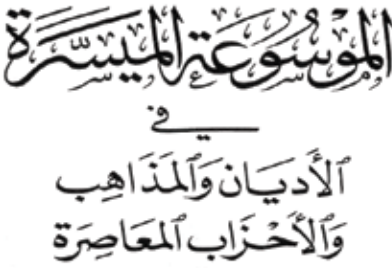 الموسُوعَة الميسَّرَة
في
ٱلأَديَان وَٱلمَذَاهِب
وَٱلأَحْزَاب ٱلمعَاصِرَة